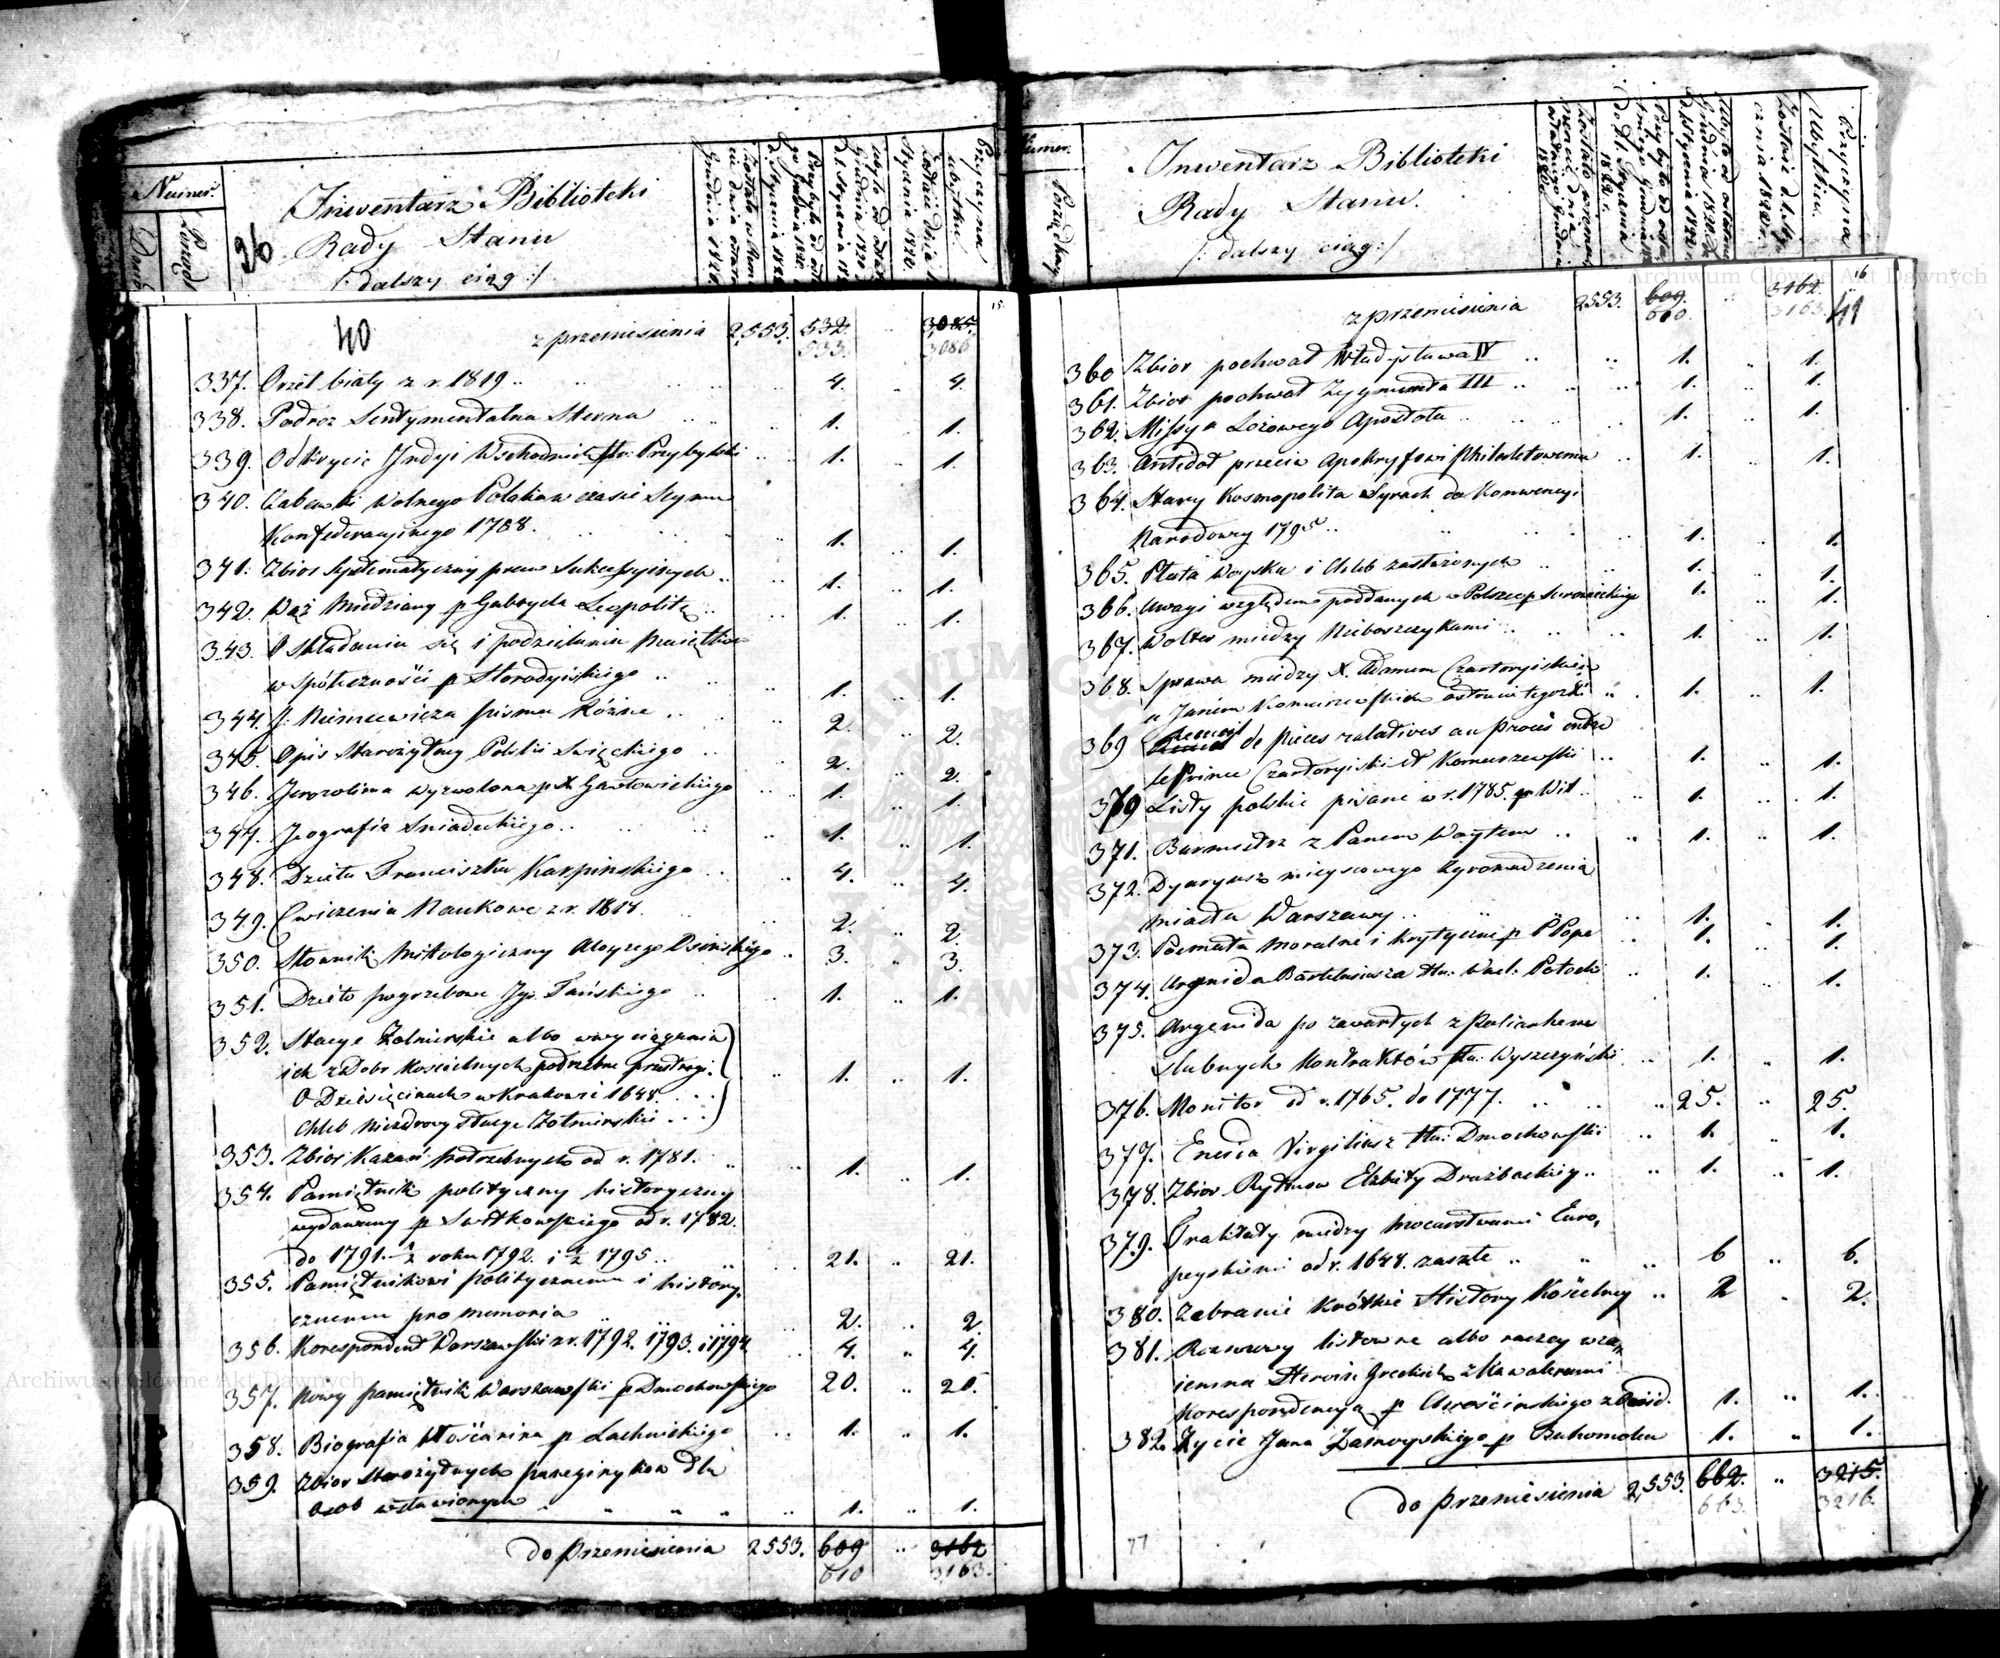 Numer.
Porząd
36
Inwentarz Biblioteki
Rady Stanu
/: dalszy ciąg :/
Przyczyna
ubytku
15.
40
z przeniesienia 2,553. 532. 3,085.
533. 3086
337. Orzeł biały z r. 1819 .. 4. .. 4.
338. Podróz Sentymentalna Sterna .. 1. .. 1.
339. Odkrycie Indyi Wschodnich tłu: Przybylski .. 1. .. 1.
340. Zabawki Wolnego Polaka w czasie Seymu
Konfederacyinego 1788. .. 1. .. 1.
341. Zbior Systematyczny praw Sukcessyinych .. 1. .. 1.
342. Wąż Miedziany p Gabryela Leopolitę .. 1. .. 1.
343. O składaniu się i podzielaniu Maiątków
w Spółeczności p Starodyiskiego .. 1. .. 1.
344. J. Niemcewicza pisma Różne .. 2. .. 2.
345. Opis Starożytney Polski Swięckiego .. 2. .. 2.
346. Jerozolima wyzwolona p X Gawłowickiego .. 1. .. 1.
347. Jeografia Sniadeckiego .. 1. .. 1.
348. Dzieła Franciszka Karpinskiego .. 4. .. 4.
349. Cwiczenia Naukowe z r. 1817. .. 2. .. 2.
350. Słownik Mitologiczny Aloyzego Osinskiego .. 3. .. 3.
351. Dzieło pogrzebowe Ig. Tańskiego .. 1. .. 1.
352. Stacye Żołnierskie albo w wyciąganiu
ich z Dobr Koscielnych potrzebne przestrogi.
O Dziesięcinach w Krakowie 1648. .. 1. .. 1.
Chleb niezdrowy Stacye Żołnierskie ..
353. Zbior Kazań potrzebnych od r. 1781. .. 1. .. 1.
354. Pamiętnik polityczny historyczny
wydawany p Switkowskiego od r. 1782.
do 1791. ½ roku 1792. i ½ 1795 .. 21. .. 21.
355. Pamiętnikowi politycznemu i history,
cznemu pro memoria .. 2. .. 2.
356. Korespondent Warszawski z r. 1792. 1793. i 1794. .. 4. .. 4.
357. Nowy pamiętnik Warszawski p Dmochowskiego 20. .. 20.
358. Biografia Włościanina p Lachnickiego .. 1. .. 1.
359. Zbior Starożytnych panegirykow dla
osob wsławionych .. 1. .. 1.
do przeniesienia 2553. 609 .. 3162
610 3,163.
Numer.
Porządkowy
Inwentarz Biblioteki
Rady Stanu.
/: dalszy ciąg :/
Przyczyna
Ubytku.
16
41
z przeniesienia 2553. 609. .. 3162.
610. 3163.
360 Zbior pochwał Władysława IV .. 1. .. 1.
361. Zbior pochwał Zygmunta III .. 1. .. 1.
362. Missya Lożowego Apostoła .. 1. .. 1.
363. Antidot przeciw Apokryfowi Philaletowemu .. 1. .. 1.
364. Stary Kosmopolita Syrach do Konwencyi
Narodowey 1795 .. 1. .. 1.
365. Płata Woyska i Chleb zasłużonych .. 1. .. 1.
366. Uwagi względem poddanych w Polszcze p Surowieckiego 1. .. 1.
367. Wolter między Nieboszczykami .. 1. .. 1.
368. Sprawa między X. Adamem Czartoryiskim
a Janem Komarzewskim .. 1. .. 1.
369 Recueil de pieces relatives au procés entre
le Prince Czartoryiski et Komarzewski .. 1. .. 1.
370 Listy polskie pisane w r. 1785. p Wit .. 1. .. 1.
371. Burmistrz z Panem Woytem .. 1. .. 1.
372. Dyaryusz mieyscowego Zgromadzenia
miasta Warszawy .. 1. .. 1.
373. Poemata Moralne i krytyczne p P Pope .. 1. .. 1.
374. Argenida Barklaiusza tłu. Wacł. Potocki .. 1. .. 1.
375. Argenida po zawartych z Poliarchem
slubnych kontraktów tłu: Wyszczyński .. 1. .. 1.
376. Monitor od r. 1765. do 1777. .. 25. .. 25.
377. Eneida Virgiliusz tłu: Dmochowski .. 1. .. 1.
378. Zbior Rytmow Elżbiety Drużbackiey .. 1. .. 1.
379. Traktaty między Mocarstwami Euro,
peyskiemi od r. 1648. zaszłe .. 6 .. 6.
380. Zebranie krótkie Historyi Kościelney .. 2 .. 2.
381. Rozmowy listowne albo raczey wza,
iemna Heroin Greckich z Kawalerami
Korespondencya p Chrościnskiego z Owid. 1. .. 1.
382. Życie Jana Zamoyskiego p Bohomolca 1. .. 1.
do przeniesienia 2,553. 662. .. 3215.
663. 3216.
77
Archiwum Główne Akt Dawnych
Archiwum Główne Akt Dawnych